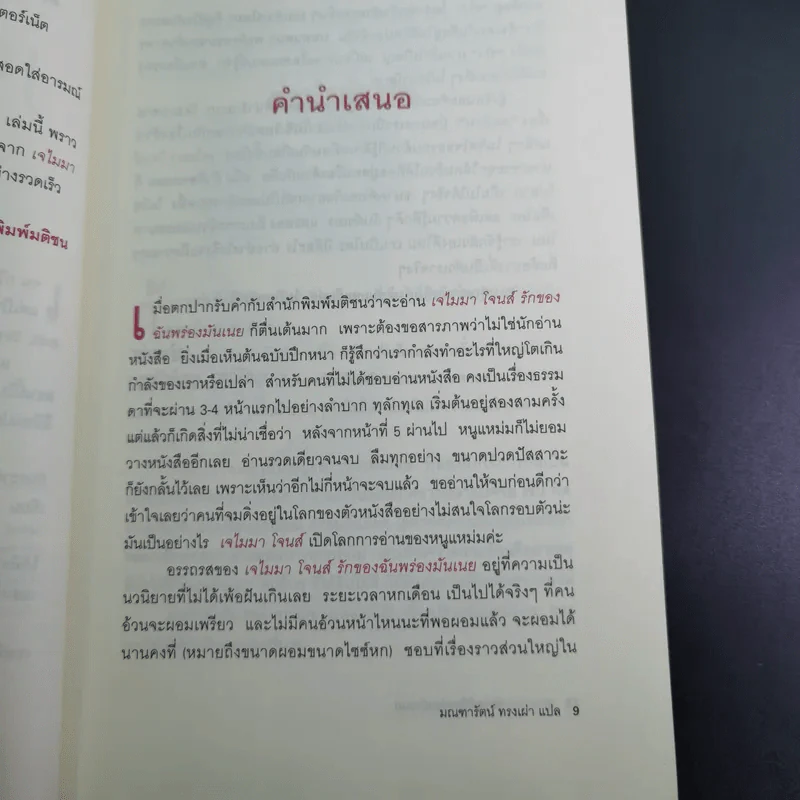 ตอร์เน็ต
สอดใส่อารมณ์
เล่มนี้ พราว
จาก เจไมมา
างรวดเร็ว
พิมพ์มติชน
คำนำเสนอ
เมื่อตกปากรับคำกับสำนักพิมพ์มติชนว่าจะอ่าน เจไมมา โจนส์ รักของ
ฉันพร่องมันเนย ก็ตื่นเต้นมาก เพราะต้องขอสารภาพว่าไม่ใช่นักอ่าน
หนังสือ ยิ่งเมื่อเห็นต้นฉบับปึกหนา ก็รู้สึกว่าเรากำลังทำอะไรที่ใหญ่โตเกิน
กำลังของเราหรือเปล่า สำหรับคนที่ไม่ได้ชอบอ่านหนังสือ คงเป็นเรื่องธรรม
ดาที่จะผ่าน 3-4 หน้าแรกไปอย่างลำบาก ทุลักทุเล เริ่มต้นอยู่สองสามครั้ง
แต่แล้วก็เกิดสิ่งที่ไม่น่าเชื่อว่า หลังจากหน้าที่ 5 ผ่านไป หนูแหม่มก็ไม่ยอม
วางหนังสืออีกเลย อ่านรวดเดียวจนจบ ลืมทุกอย่าง ขนาดปวดปัสสาวะ
ก็ยังกลั้นไว้เลย เพราะเห็นว่าอีกไม่กี่หน้าจะจบแล้ว ขออ่านให้จบก่อนดีกว่า
เข้าใจเลยว่าคนที่จมดิ่งอยู่ในโลกของตัวหนังสืออย่างไม่สนใจโลกรอบตัวน่ะ
มันเป็นอย่างไร เจไมมา โจนส์ เปิดโลกการอ่านของหนูแหม่มค่ะ
อรรถรสของ เจไมมา โจนส์ รักของฉันพร่องมันเนย อยู่ที่ความเป็น
นวนิยายที่ไม่ได้เพ้อฝันเกินเลย ระยะเวลาหกเดือน เป็นไปได้จริงๆ ที่คน
อ้วนจะผอมเพรียว และไม่มีคนอ้วนหน้าไหนนะที่พอผอมแล้ว จะผอมได้
นานคงที่ (หมายถึงขนาดผอมขนาดไซซ์หก) ชอบที่เรื่องราวส่วนใหญ่ใน
มณฑารัตน์ ทรงเผ่า แปล 9